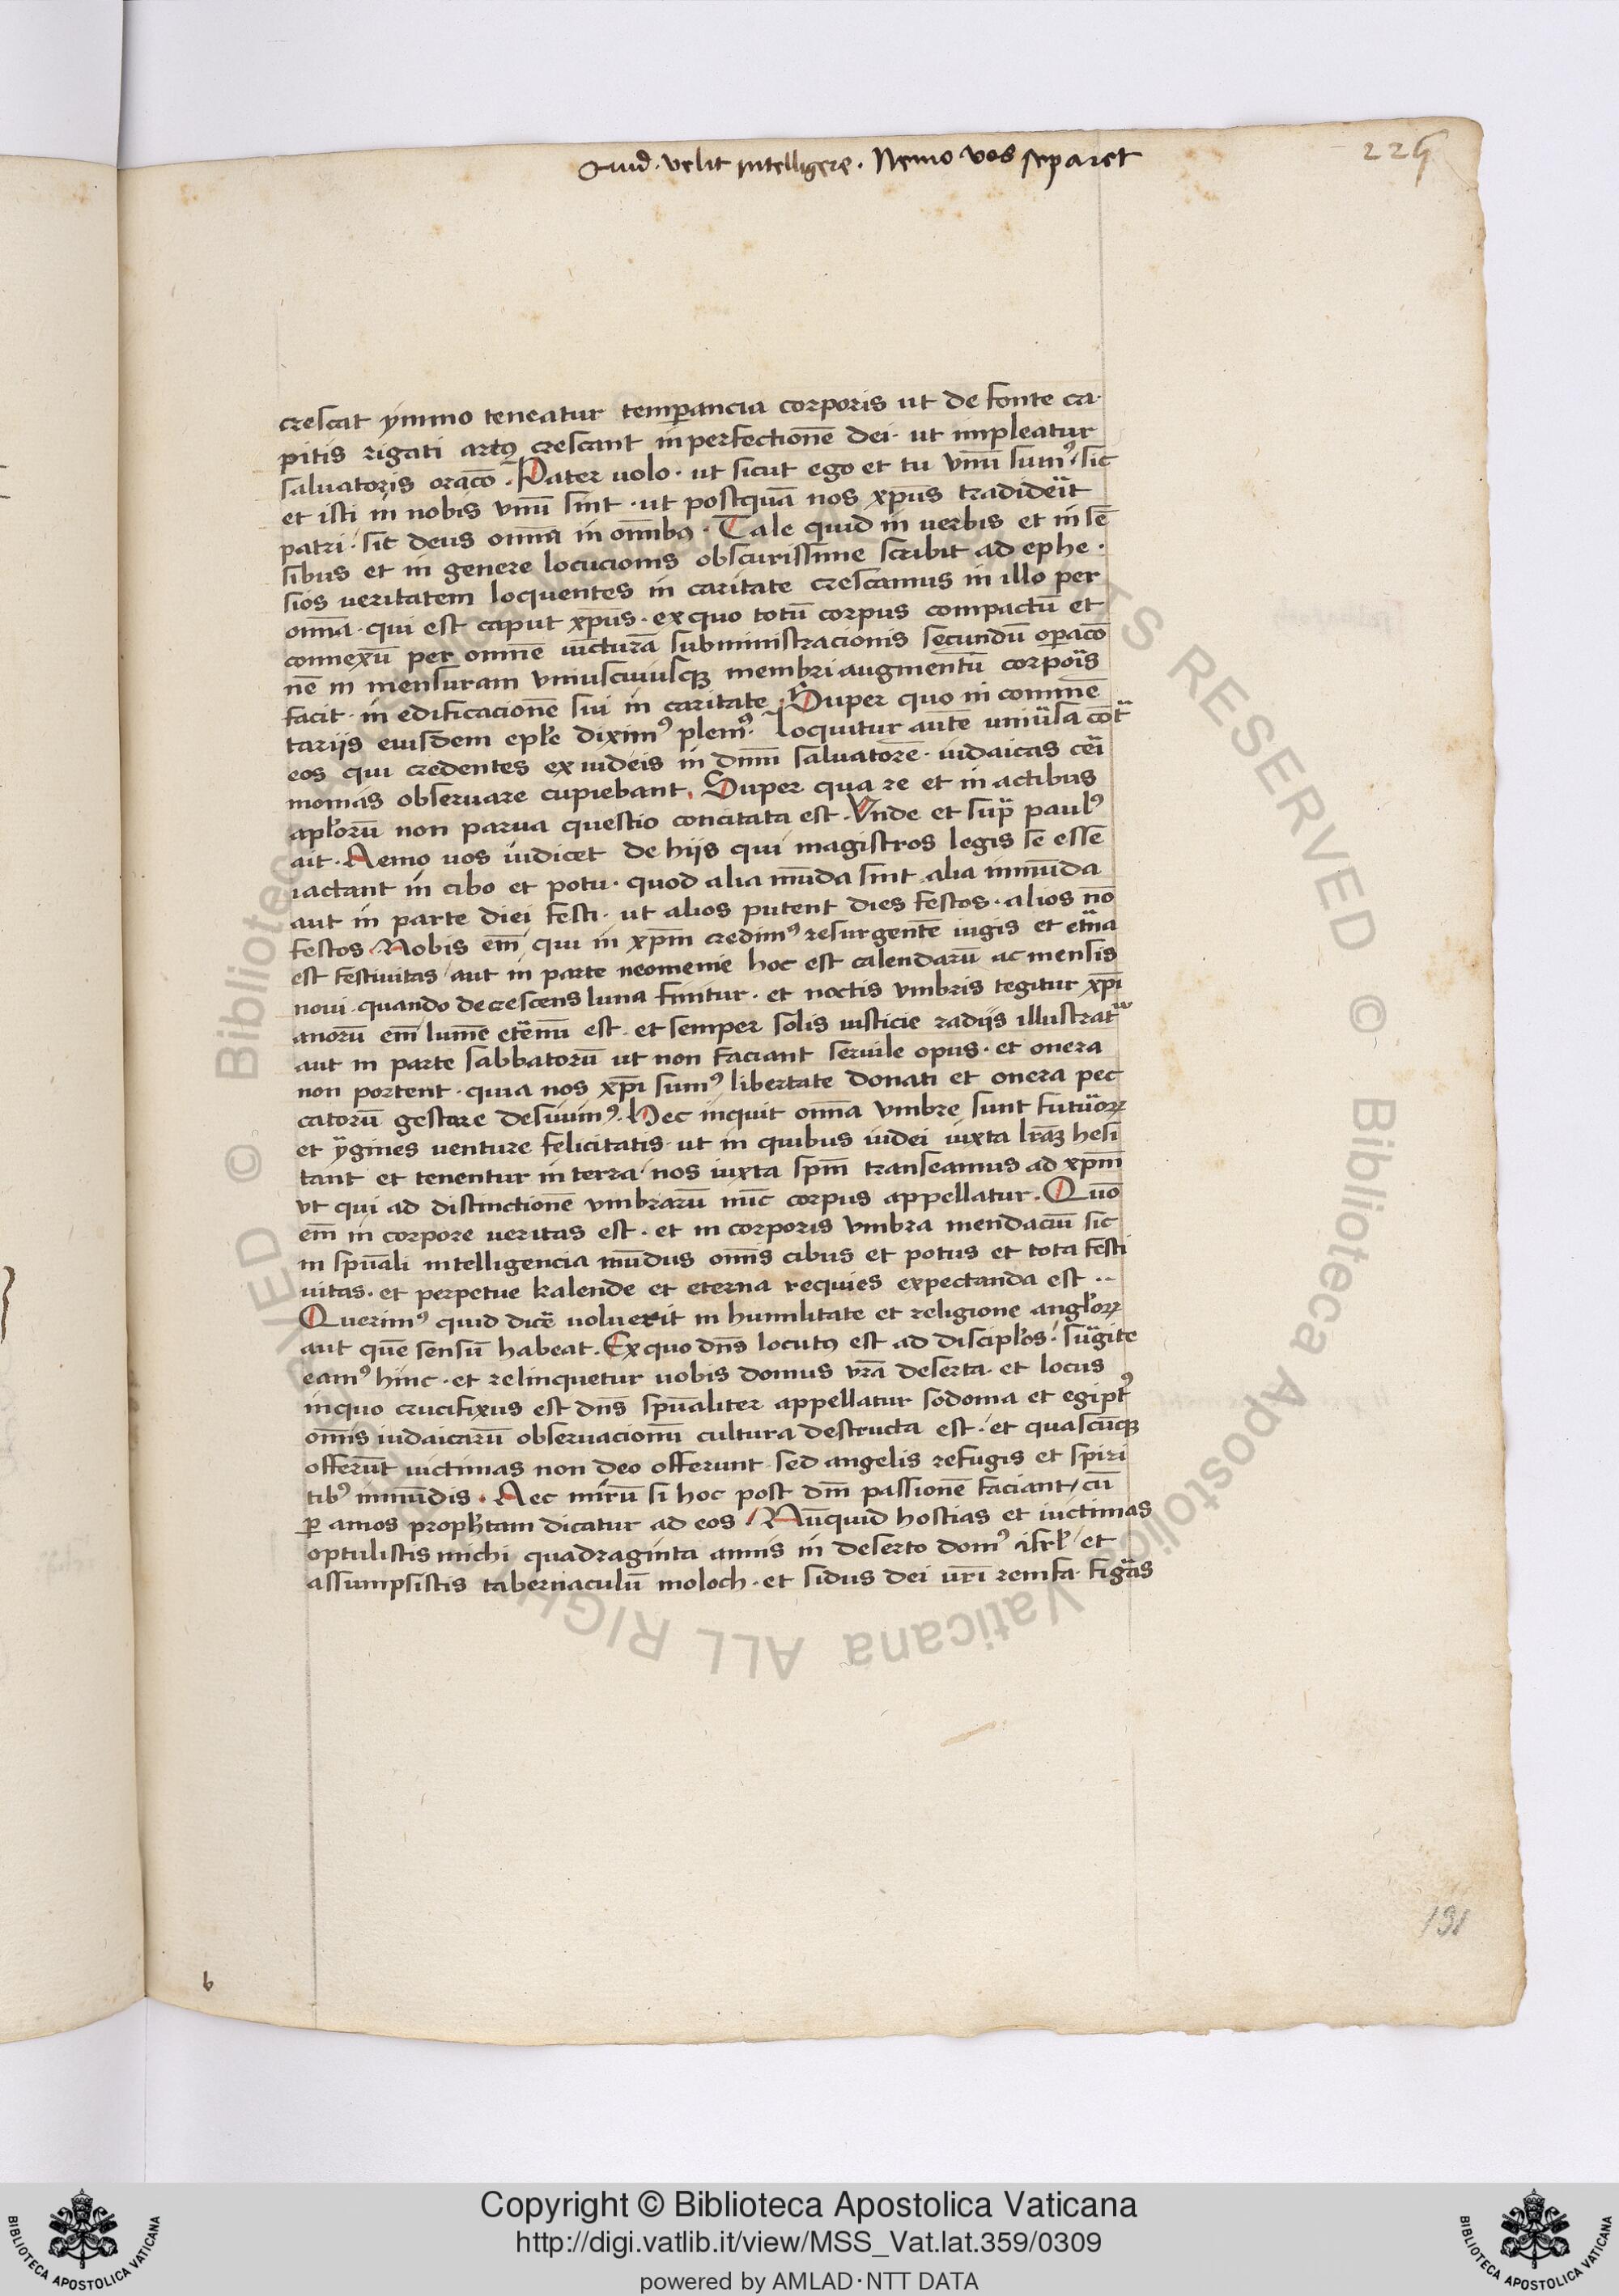 Quid velit intelligere. Nemo vos separet
225
crescat ymmo teneatur temperancia corporis ut de fonte ca-
pitis rigati artꝰ crescant in perfectionē dei · ut impleatur
saluatoris oracō · Pater uolo · ut sicut ego et tu vnū sumꝰ / sic
et isti in nobis vnū sint · ut postquā nos xp̄us tradiderit
patri · sit deus om̄ia in om̄ibꝰ · Tale quid in uerbis et in sē
sibus et in genere locucionis obscurissime scribit ad ephe ·
sios ueritatem loquentes in caritate crescamus in illo per
om̄ia · qui est caput xp̄us · ex quo totū corpus compactū et
connexū per omnē iūcturā subministracionis secundū op̄acō
nē in mensuram vniuscuiusqꝫ membri augmentū corporis
facit · in edificacionē sui in caritate · Super quo in commē
tariis eiusdem ep̄le diximꝰ plenꝰ · loquitur autē uniūsa cōt̄
eos qui credentes ex iudeis in dn̄m saluatorē · iudaicas ceri
monias obseruare cupiebant · Super qua re et in actibus
apl̄orū non parua questio concitata est · Vnde et sup̄ paulꝰ
ait · Nemo uos iudicet de hijs qui magistros legis sē essē
iactant in cibo et potu · quod alia mūda sint alia inmūda
aut in parte diei festi · ut alios putent dies festos · alios nō
festos · Nobis em̄ qui in xp̄m credimꝰ resurgentē iugis et et̄na
est festiuitas / aut in parte neomenie hoc est calendarū ac mensis
noui · quando decrescens luna finitur · et noctis vmbris tegitur xp̄i
anorū em̄ lumē et̄nū est · et semper solis iusticie radijs illustrat̄
aut in parte sabbatorū ut non faciant seruile opus · et onera
non portent · quia nos xp̄i sumꝰ libertate donati et onera pec
catorū gestare desiuimꝰ · Hec inquit om̄ia vmbre sunt futuroꝝ
et ymagines uenture felicitatis · ut in quibus iudei iuxta lr̄aꝫ hesi
tant et tenentur in terra / nos iuxta sp̄m transeamus ad xp̄m
vt qui ad distinctionē vmbrarū nūc corpus appellatur · Quō
em̄ in corpore ueritas est · et in corporis vmbra mendaciū sic
in spūali intelligencia mūdus om̄is cibus et potus et tota festi
uitas · et perpetue kalende et eterna requies expectanda est ··
Querimꝰ quid dicē uoluerit in humilitate et religione angl̄oꝝ
aut quē sensū habeat · Ex quo dn̄s locutꝰ est ad discipl̄os · surgite
eamꝰ hinc · et relinquetur uobis domus vrā deserta · et locus
in quo crucifixus est dn̄s spūaliter appellatur sodoma et egiptꝰ
om̄is iudaicarū obseruacionū cultura destructa est · et quascūqꝫ
offerūt uictimas non deo offerunt sed angelis refugis et spiri
tibꝰ inmūdis · Nec mirū si hoc post dn̄i passionē faciant / cū
ꝑ amos prophetam dicatur ad eos · Nūquid hostias et uictimas
optulistis michi quadraginta annis in deserto domꝰ isrl̄ / et
assumpsistis tabernaculū moloch · et sidus dei vrī remfa · figuras
191
b
Copyright © Biblioteca Apostolica Vaticana
http://digi.vatlib.it/view/MSS_Vat.lat.359/0309
powered by AMLAD·NTT DATA
BIBLIOTECA APOSTOLICA VATICANA
BIBLIOTECA APOSTOLICA VATICANA
© Biblioteca Apostolica Vaticana ALL RIGHTS RESERVED
© Biblioteca Apostolica Vaticana ALL RIGHTS RESERVED